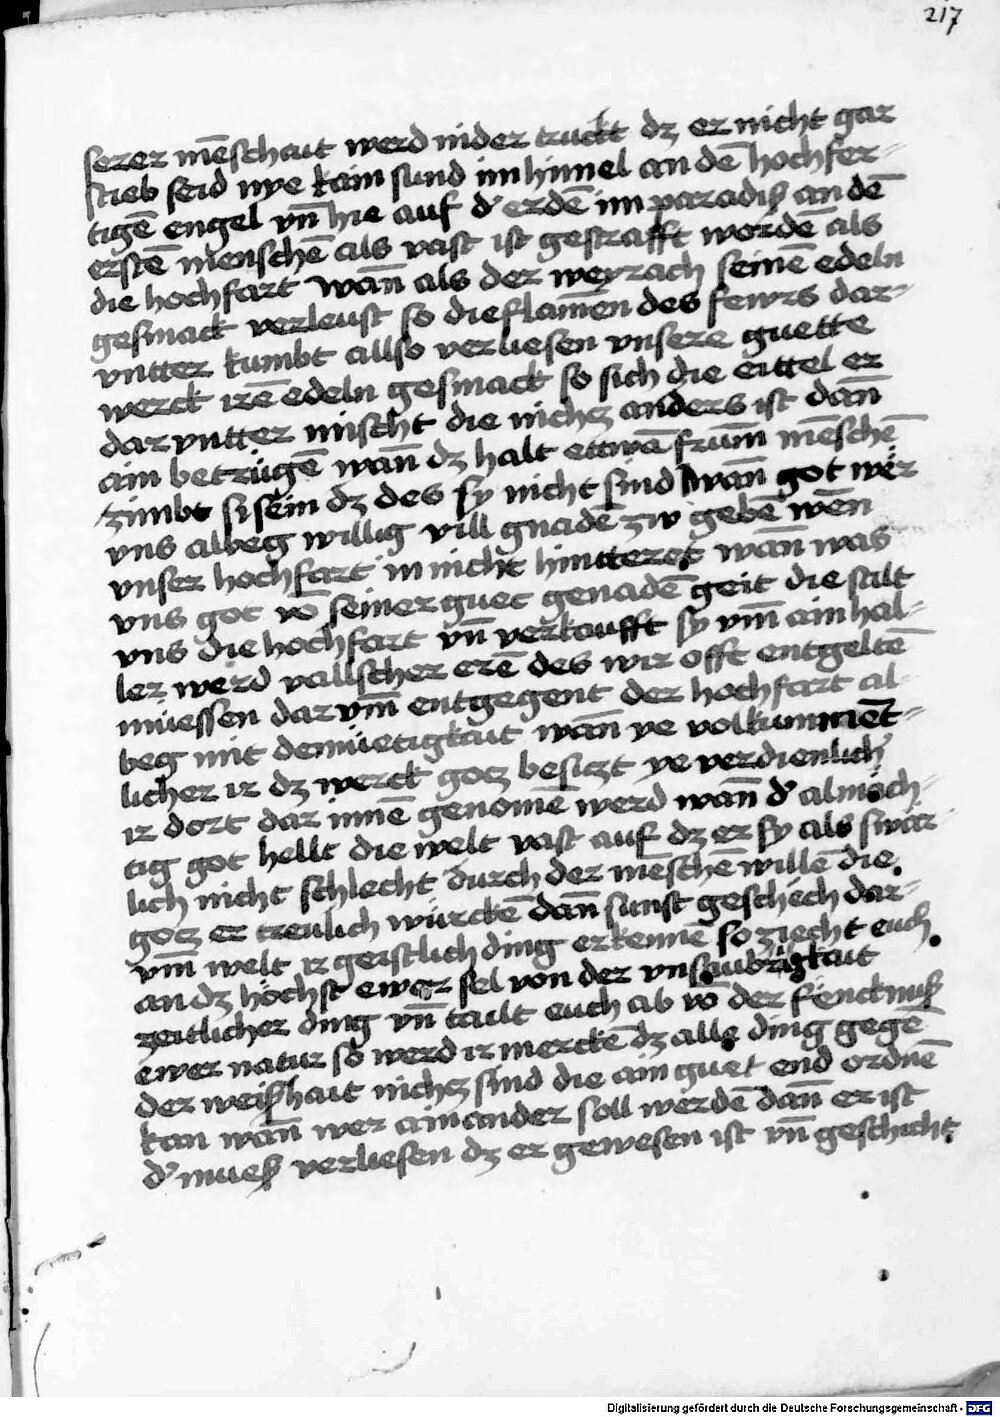 217
serer mēschait werd nider truckt dz er nicht gar
stieb seid nye kain sund im himel an dē hochfer-
tigē engel vn̄ hie auf d' erdē im paradiß an dē
erstē menschē als vast ist gestrafft wordē als
die hochfart wān als der weyrach seinē edeln
gesmack verleust so die flamen des fewrs dar-
vntter kumbt allso verliesen vnsere guette
werck irē edeln gesmack so sich die eittel er
dar vntter mischt die nichcz anders ist dān
ain betrügē wān dz halt ettwā frūm mēschē
zimbt si sein dz des sy nicht sind wān got wër
vns albeg willig vill gnadē zw gebē wēn
vnser hochfart in nicht hintteret wān was
vns got vō seiner guet genadē geit die stilt
vns die hochfart vn̄ verkaufft sy vm̄ ain hal-
ler werd vallscher erē des wir offt entgeltē
müessen dar vm̄ entgegent der hochfart al-
beg mit demüetigkait wān ye volkummēt-
licher ir dz werck gocz besiczt ye verdienlich
ir dort dar innē genomē werd wān d' almäch-
tig got hellt die welt vast auf dz er sy als swär-
lich nicht schlecht durch der mēschē willē die
gocz er treulich würckē dān sunst geschech dar-
vm̄ welt ir geistlich ding erkennē so ziecht euch
an dz höchst ewer sel von der vnsaubrigkait
zeitlicher ding vn̄ tailt euch ab vō der fencknuß
ewer natur so werd ir merckē dz alle ding gegē
der weißhait nichcz sind die ain guet end ordnē
kan wān wer ain ander soll werdē dān er ist
d' mueß verliesen dz er gewesen ist vn̄ geschicht
Digitalisierung gefördert durch die Deutsche Forschungsgemeinschaft - DFG